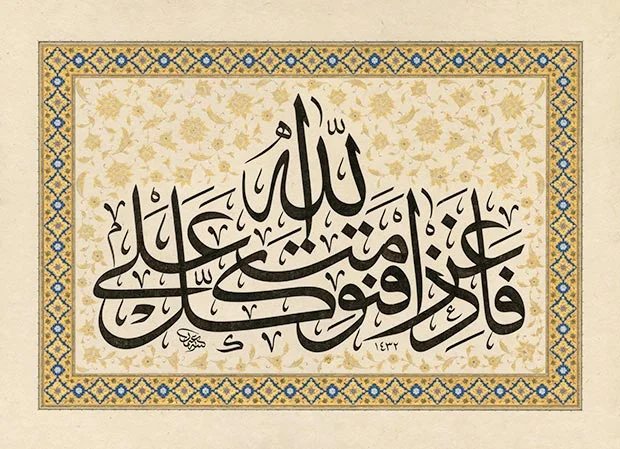 فاذا عزمت فتوكل على الله
١٤٣٢